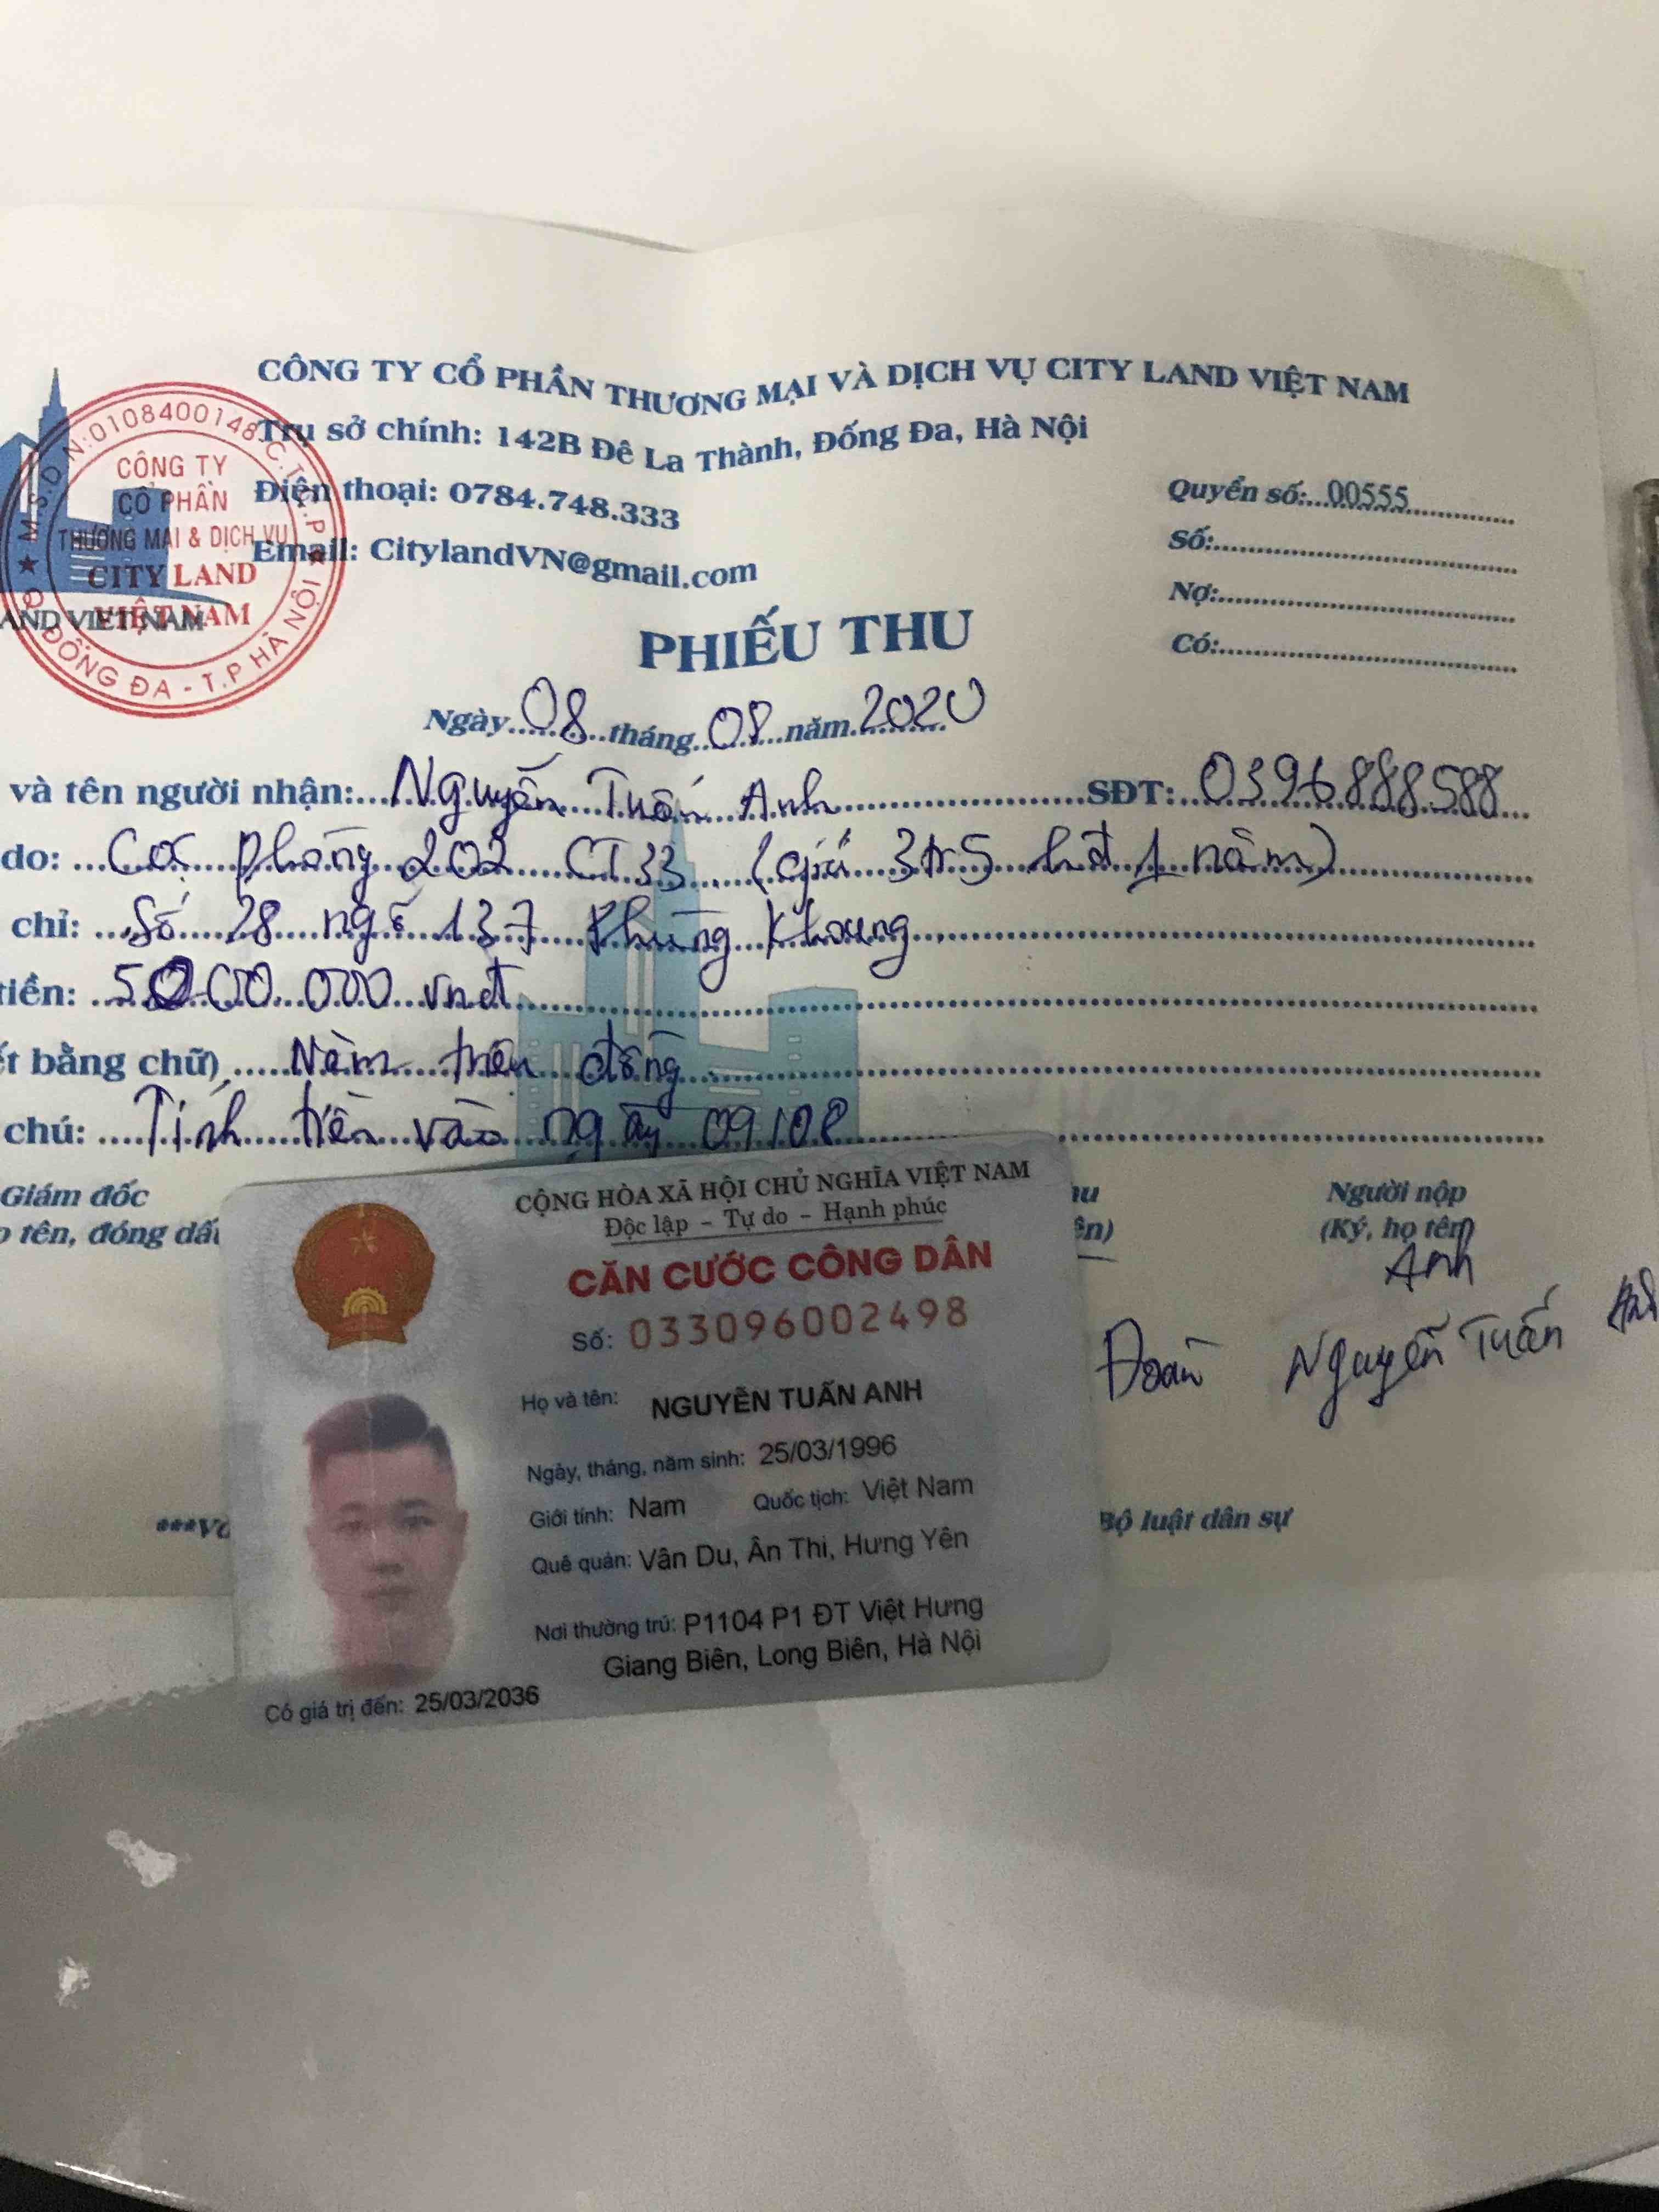 CÔNG TY CỔ PHẦN THƯƠNG MẠI VÀ DỊCH VỤ CITY LAND VIỆT NAM
Trụ sở chính: 142B Đê La Thành, Đống Đa, Hà Nội
Điện thoại: 0784.748.333
Email: CitylandVN@gmail.com
M.S.D.N:0108400148.C.T.C.P
CÔNG TY
CỔ PHẦN
THƯƠNG MẠI & DỊCH VỤ
CITY LAND
VIỆT NAM
Q. ĐỐNG ĐA - T.P HÀ NỘI
AND VIET NAM
Quyển số:...00555
Số:
Nợ:
Có:
PHIẾU THU
Ngày 08 tháng 08 năm 2020
và tên người nhận: Nguyễn Tuấn Anh SĐT: 0396888588
do: Cọc phòng 202 CT33 (giá 3tr5 hđ 1 năm)
chỉ: Số 28 ngõ 137 Phùng Khoang
tiền: 5000.000 vnđ
ết bằng chữ) Năm triệu đồng
chú: Tính tiền vào ngày 09/08
Giám đốc
tên, đóng dấu
hu
ên)
Người nộp
(Ký, họ tên)
Anh
Đoàn Nguyễn Tuấn Anh
Bộ luật dân sự
CỘNG HÒA XÃ HỘI CHỦ NGHĨA VIỆT NAM
Độc lập - Tự do - Hạnh phúc
CĂN CƯỚC CÔNG DÂN
Số: 033096002498
Họ và tên: NGUYỄN TUẤN ANH
Ngày, tháng, năm sinh: 25/03/1996
Giới tính: Nam Quốc tịch: Việt Nam
Quê quán: Vân Du, Ân Thi, Hưng Yên
Nơi thường trú: P1104 P1 ĐT Việt Hưng
Giang Biên, Long Biên, Hà Nội
Có giá trị đến: 25/03/2036